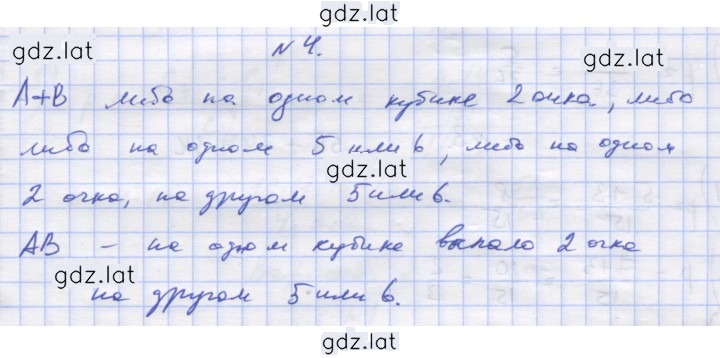 gdz.lat
gdz.lat
N 4.
gdz.lat
А+В либо на одном кубике 2 очка, либо
либо на одном 5 или 6, либо на одном
gdz.lat
2 очка, на другом 5 или 6.
АВ - на одном кубике выпало 2 очка
gdz.lat
на другом 5 или 6.
gdz.lat
gdz.lat